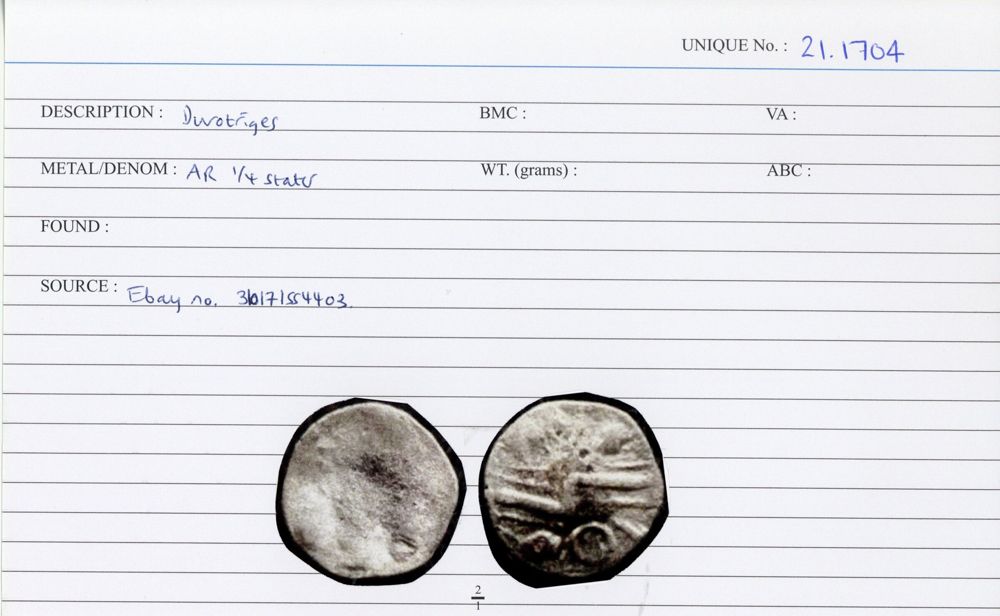 UNIQUE No. : 21.1704
DESCRIPTION : Durotriges BMC : VA :
METAL/DENOM : AR 1/4 stater WT. (grams) : ABC :
FOUND :
SOURCE : Ebay no. 310171554403.
2/1